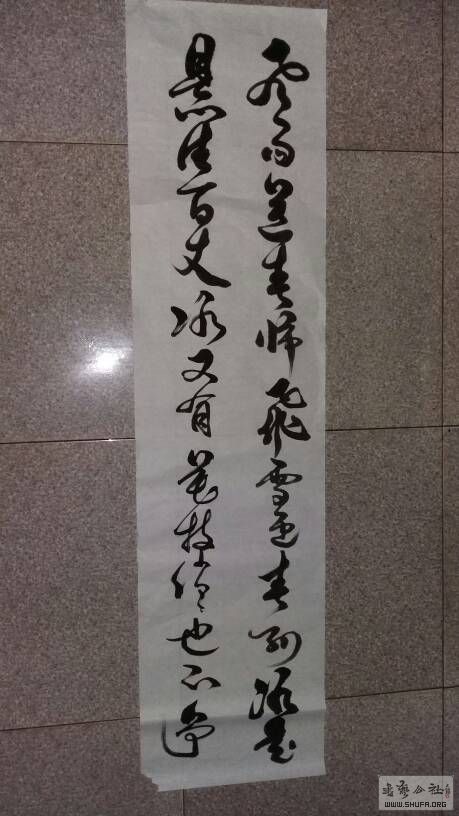 风雨送春归飞雪迎春到是
悬崖百丈冰又有花枝俏〻也不争
书艺公社
WWW.SHUFA.ORG